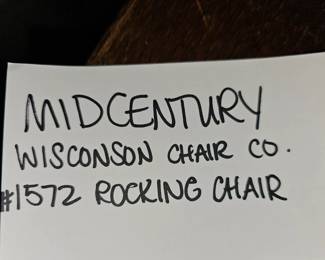 MIDCENTURY
WISCONSON CHAIR CO.
#1572 ROCKING CHAIR